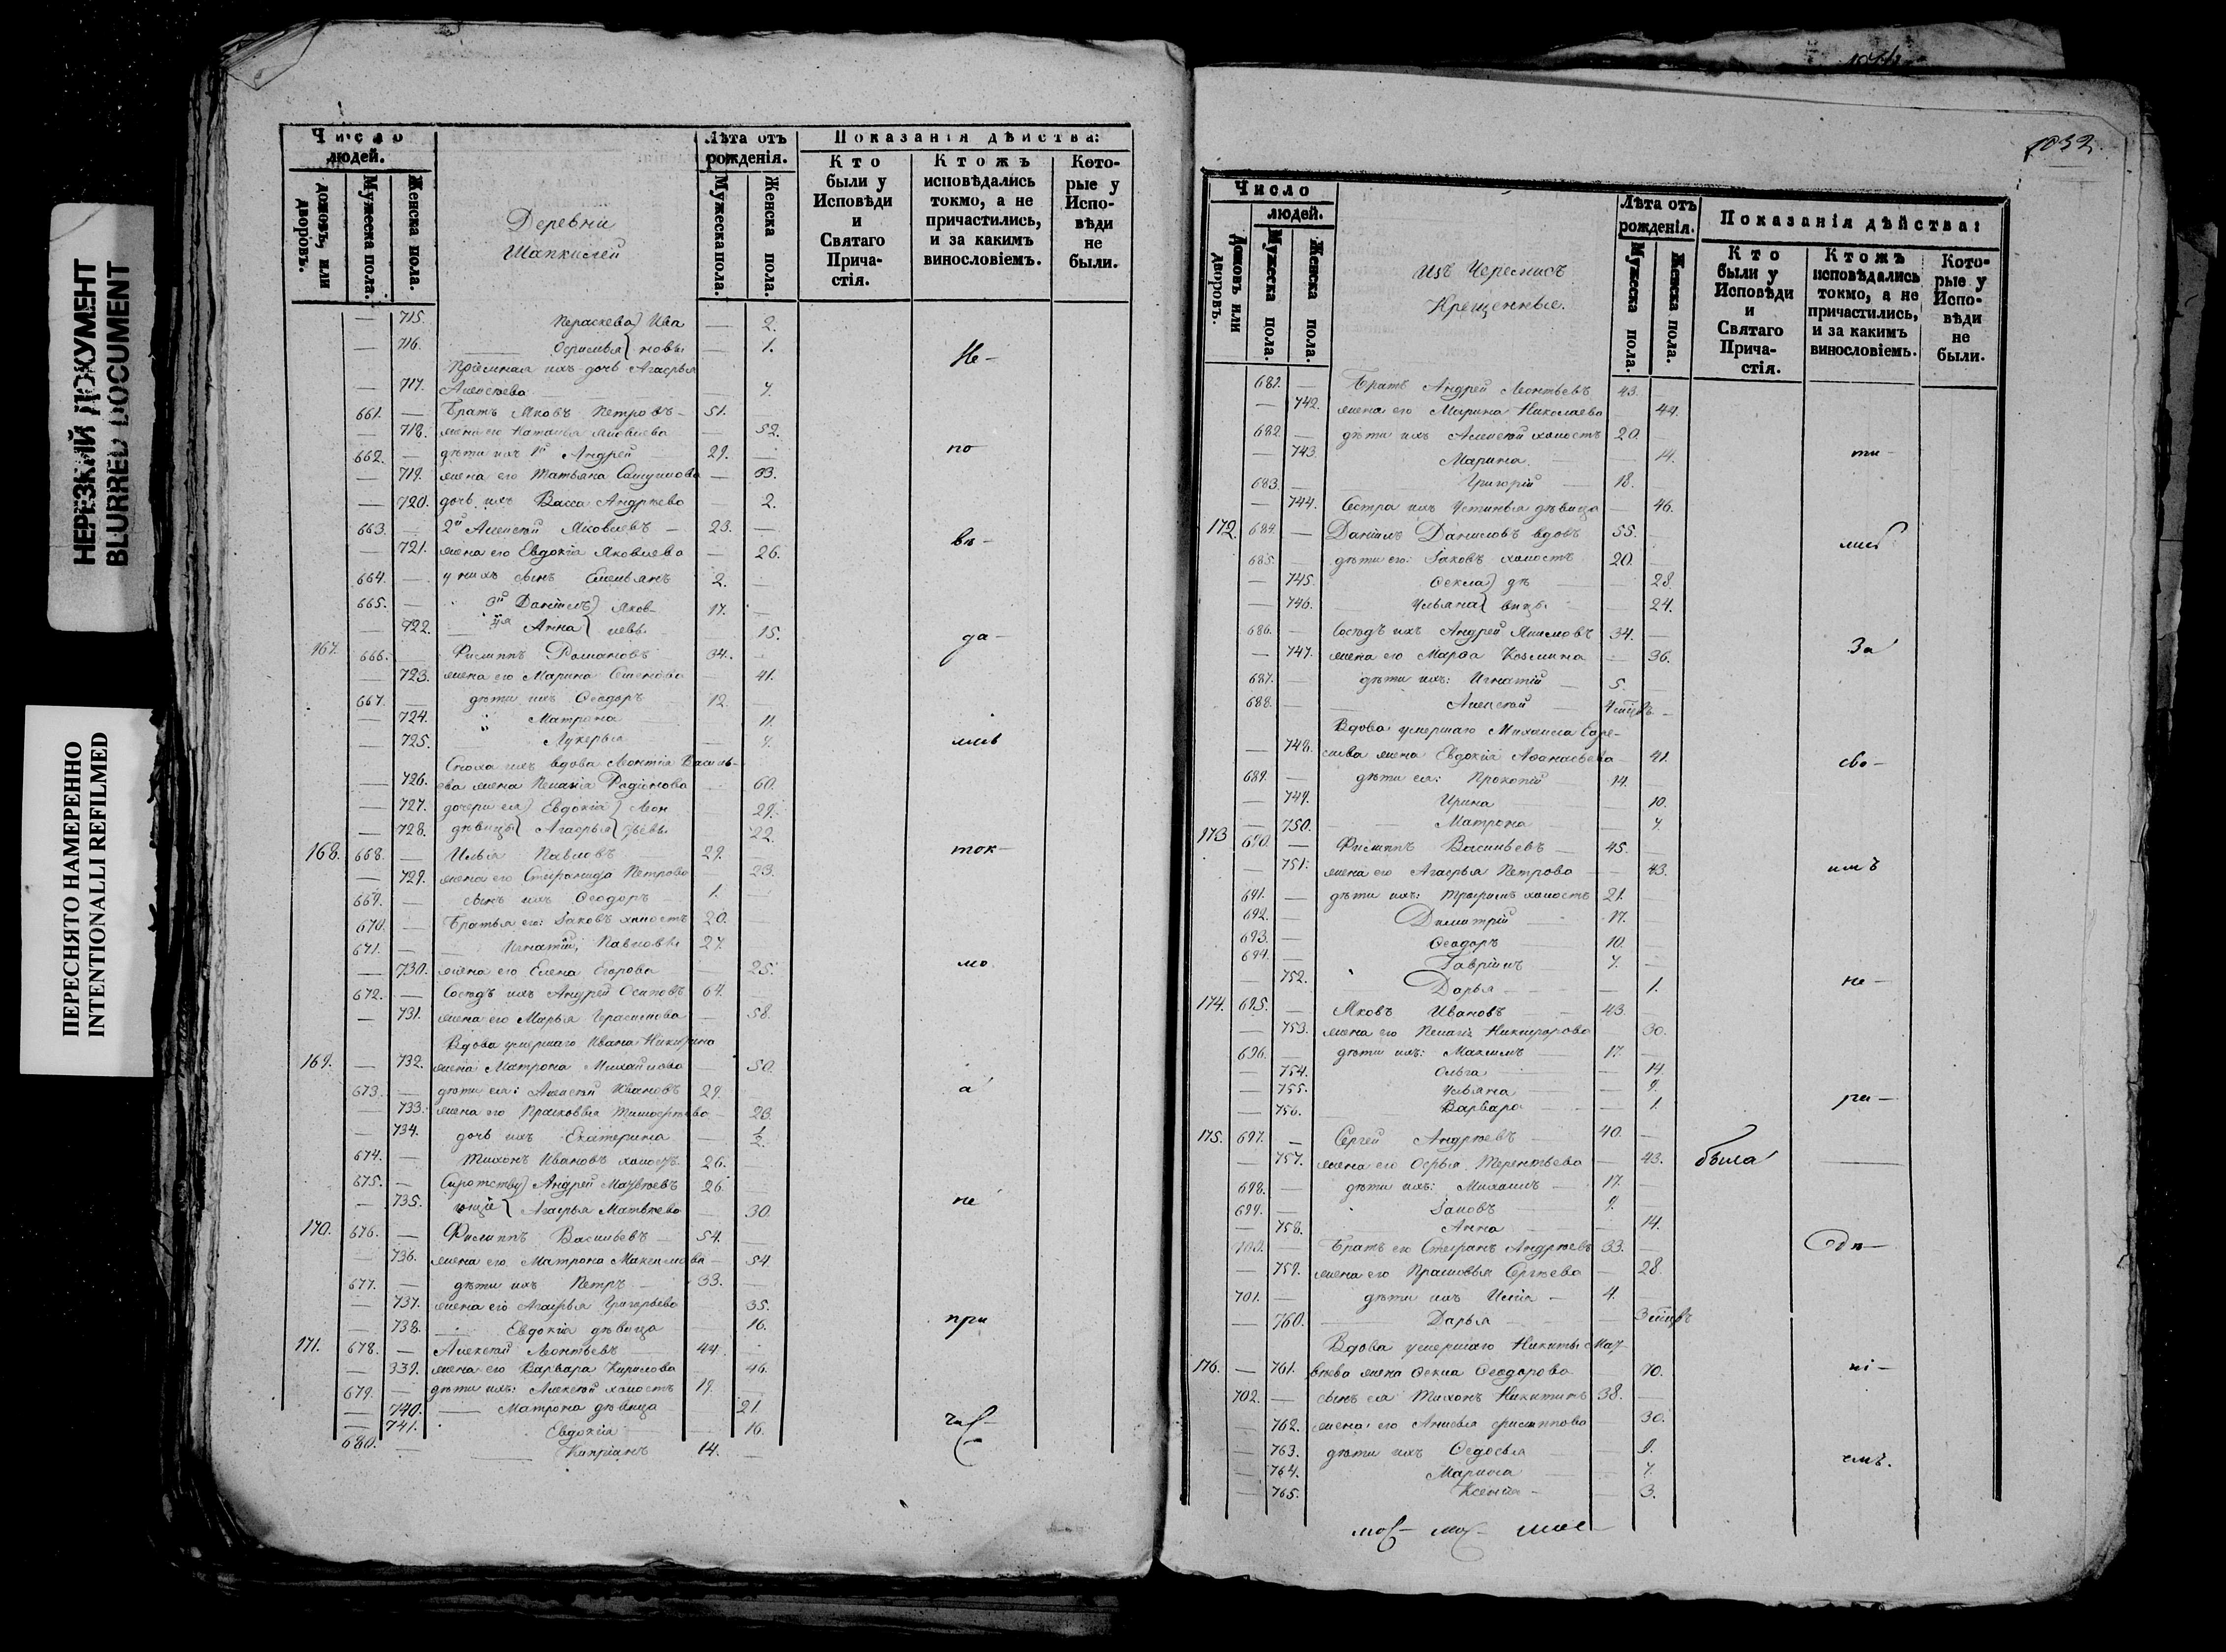 НЕРЕЗКИЙ ДОКУМЕНТ
BLURRED DOCUMENT
ПЕРЕСНЯТО НАМЕРЕННО
INTENTIONALLI REFILMED
Число
людей.
домовъ, или дворовъ.
Мужеска пола.
Женска пола.
Деревни
Шапкилей
Лѣта отъ
рожденія.
Мужеска пола.
Женска пола.
Показанія дѣйства:
Кто
были у
Исповѣди
и
Святаго
Прича-
стія.
Ктожъ
исповѣдались
токмо, а не
причастились,
и за какимъ
винословіемъ.
Кото-
рые у
Испо-
вѣди
не
были.
— 715. Параскева } Ива — 2.
— 716. } новы — 1. Не-
Пріемная ихъ дочь Агафья
— 717. Алексѣева
661. — Братъ Яковъ Петровъ — 51.
— 718. жена его Наталья Яковлева — 52.
662. — дѣти ихъ 1й Андрей 29. по
— 719. жена его Татьяна — 33.
— 720. дочь ихъ Васса Андрѣева — 2.
663. — 2й Алексѣй Яковлевъ — 23. —
— 721. жена его Евдокія Яковлева — 26. вѣ-
664. — у нихъ сынъ Емельянъ 2.
665. — 3й Даніилъ } Яков- 17. —
— 722. Анна } левы — 15. да-
167. 666. — Филиппъ Романовъ 34. —
— 723. жена его Марина Семенова — 41.
667. — дѣти ихъ Ѳеодоръ 12. —
— 724. Матрона — 11.
— 725. Лукерья — лись
Сноха ихъ вдова Леонтія Василь-
— 726. ева жена Пелагія Радіонова — 60.
— 727. дочери ея } Евдокія } Леон — 29.
— 728. дѣвицы } Агафья } тьевы — 22.
168. 668. — Илья Павловъ 29. — ток-
— 729. жена его Степанида Петрова — 23.
669. — сынъ ихъ Ѳеодоръ 1. —
670. — Братья его: Іаковъ холостъ 20.
671. — Игнатій, Павловы 27.
— 730. жена его Елена Егорова — 25. мо
672. — Сосѣдъ ихъ Андрей Осиповъ 64.
— 731. жена его Марья Герасимова — 58.
Вдова умершаго Ивана Никитина
169. — 732. жена Матрона Михайлова — 50.
673. — дѣти ея: Алексѣй Ивановъ 29. а
— 733. жена его Прасковья Тимофеева — 23.
— 734. дочь ихъ Екатерина — 1/2.
674. — Тихонъ Ивановъ холостъ 26.
675. — Сиротству } Андрей Матвѣевъ 26.
— 735. ющіе } Агафья Матвѣева — 30. не
170. 676. — Филиппъ Васильевъ — 54. —
— 736. жена его Матрона Максимова — 54
677. — дѣти ихъ Петръ 33. —
— 737. жена его Агафья Григорьева 35.
— 738. Евдокія дѣвица — 16. при
171. 678. — Алексѣй Леонтьевъ 44.
— 339. жена его Варвара Кирилова — 46.
679. — дѣти ихъ: Алексѣй холостъ 19.
— 740. — Матрона дѣвица 21.
— 741. Евдокія — 16. час-
680. — Кипріанъ 14. —
1032.
Число
людей.
Домовъ или дворовъ.
Мужеска пола.
Женска пола.
Изъ Черемисъ
Крещенные.
Лѣта отъ
рожденія.
Мужеска пола.
Женска пола.
Показанія дѣйства:
Кто
были у
Исповѣди
и
Святаго
Прича-
стія.
Ктожъ
исповѣдались
токмо, а не
причастились,
и за какимъ
винословіемъ.
Кото-
рые у
Испо-
вѣди
не
были.
681. — Братъ Андрей Леонтьевъ 43. —
— 742. жена его Марина Николаева — 44.
682. — дѣти ихъ Алексѣй холостъ 20. —
— 743. Марина — 14. ти-
683. — Григорій — 18. —
— 744. Сестра ихъ Устинья дѣвица — 46.
172. 684. — Даніилъ Даниловъ вдовъ 55. — лись
685. — дѣти его: Іаковъ холостъ 20. —
— 745. Ѳекла } дѣ — 28.
— 746. Ульяна } вицы — 24.
686. — Сосѣдъ ихъ Андрей Якимовъ 34. —
— 747. жена его Марѳа Козмина — 36. За
687. — дѣти ихъ: Игнатій — 5. —
688. — Алексѣй —
Вдова умершаго Михаила Ефре-
— 748. жена Евдокія Аѳанасьева — 41. сво-
689. — дѣти ея: Прокопій 14. —
— 749. Ирина — 10.
— 750. — Матрона — 7.
173 690. — Филиппъ Васильевъ — 45. —
— 751. жена его Агафья Петрова — 43. имъ
691. — дѣти ихъ: Трофимъ холостъ 21.
692. — Димитрій 17. —
693. — Ѳеодоръ 10. —
694. — Гавріилъ 7. —
— 752. Дарья — 1. не-
174. 695. — Яковъ Ивановъ — 43. —
— 753. жена его Пелагія Никифорова 30.
696. — дѣти ихъ: Максимъ — 17. —
— 754. Ольга — 14.
— 755. Ульяна — 9.
— 756. Варвара — 1. ра-
175. 697. — Сергей Андрѣевъ — 40. —
— 757. жена его Терентьева — 43. была —
698. — дѣти ихъ: Михаилъ — 17. —
699. — Іаковъ 9. —
— 758. Анна — 14.
700. — Братъ его Стефанъ Андрѣевъ 33. —
— 759. жена его Прасковья Сергѣева — 28.
701. — дѣти ихъ Илія — 4.
— 760. Дарья — 3
Вдова умершаго Никиты Мат-
176. — 761. вѣева жена Ѳекла Ѳеодорова — 70. ні-
702. — сынъ ея Тихонъ Никитинъ 38. —
— 762. жена его Анисья Филиппова — 30.
— 763. дѣти ихъ Ѳедосья — 9.
— 764. Марина — 7. емъ.
— 765. Ксенія — 3.